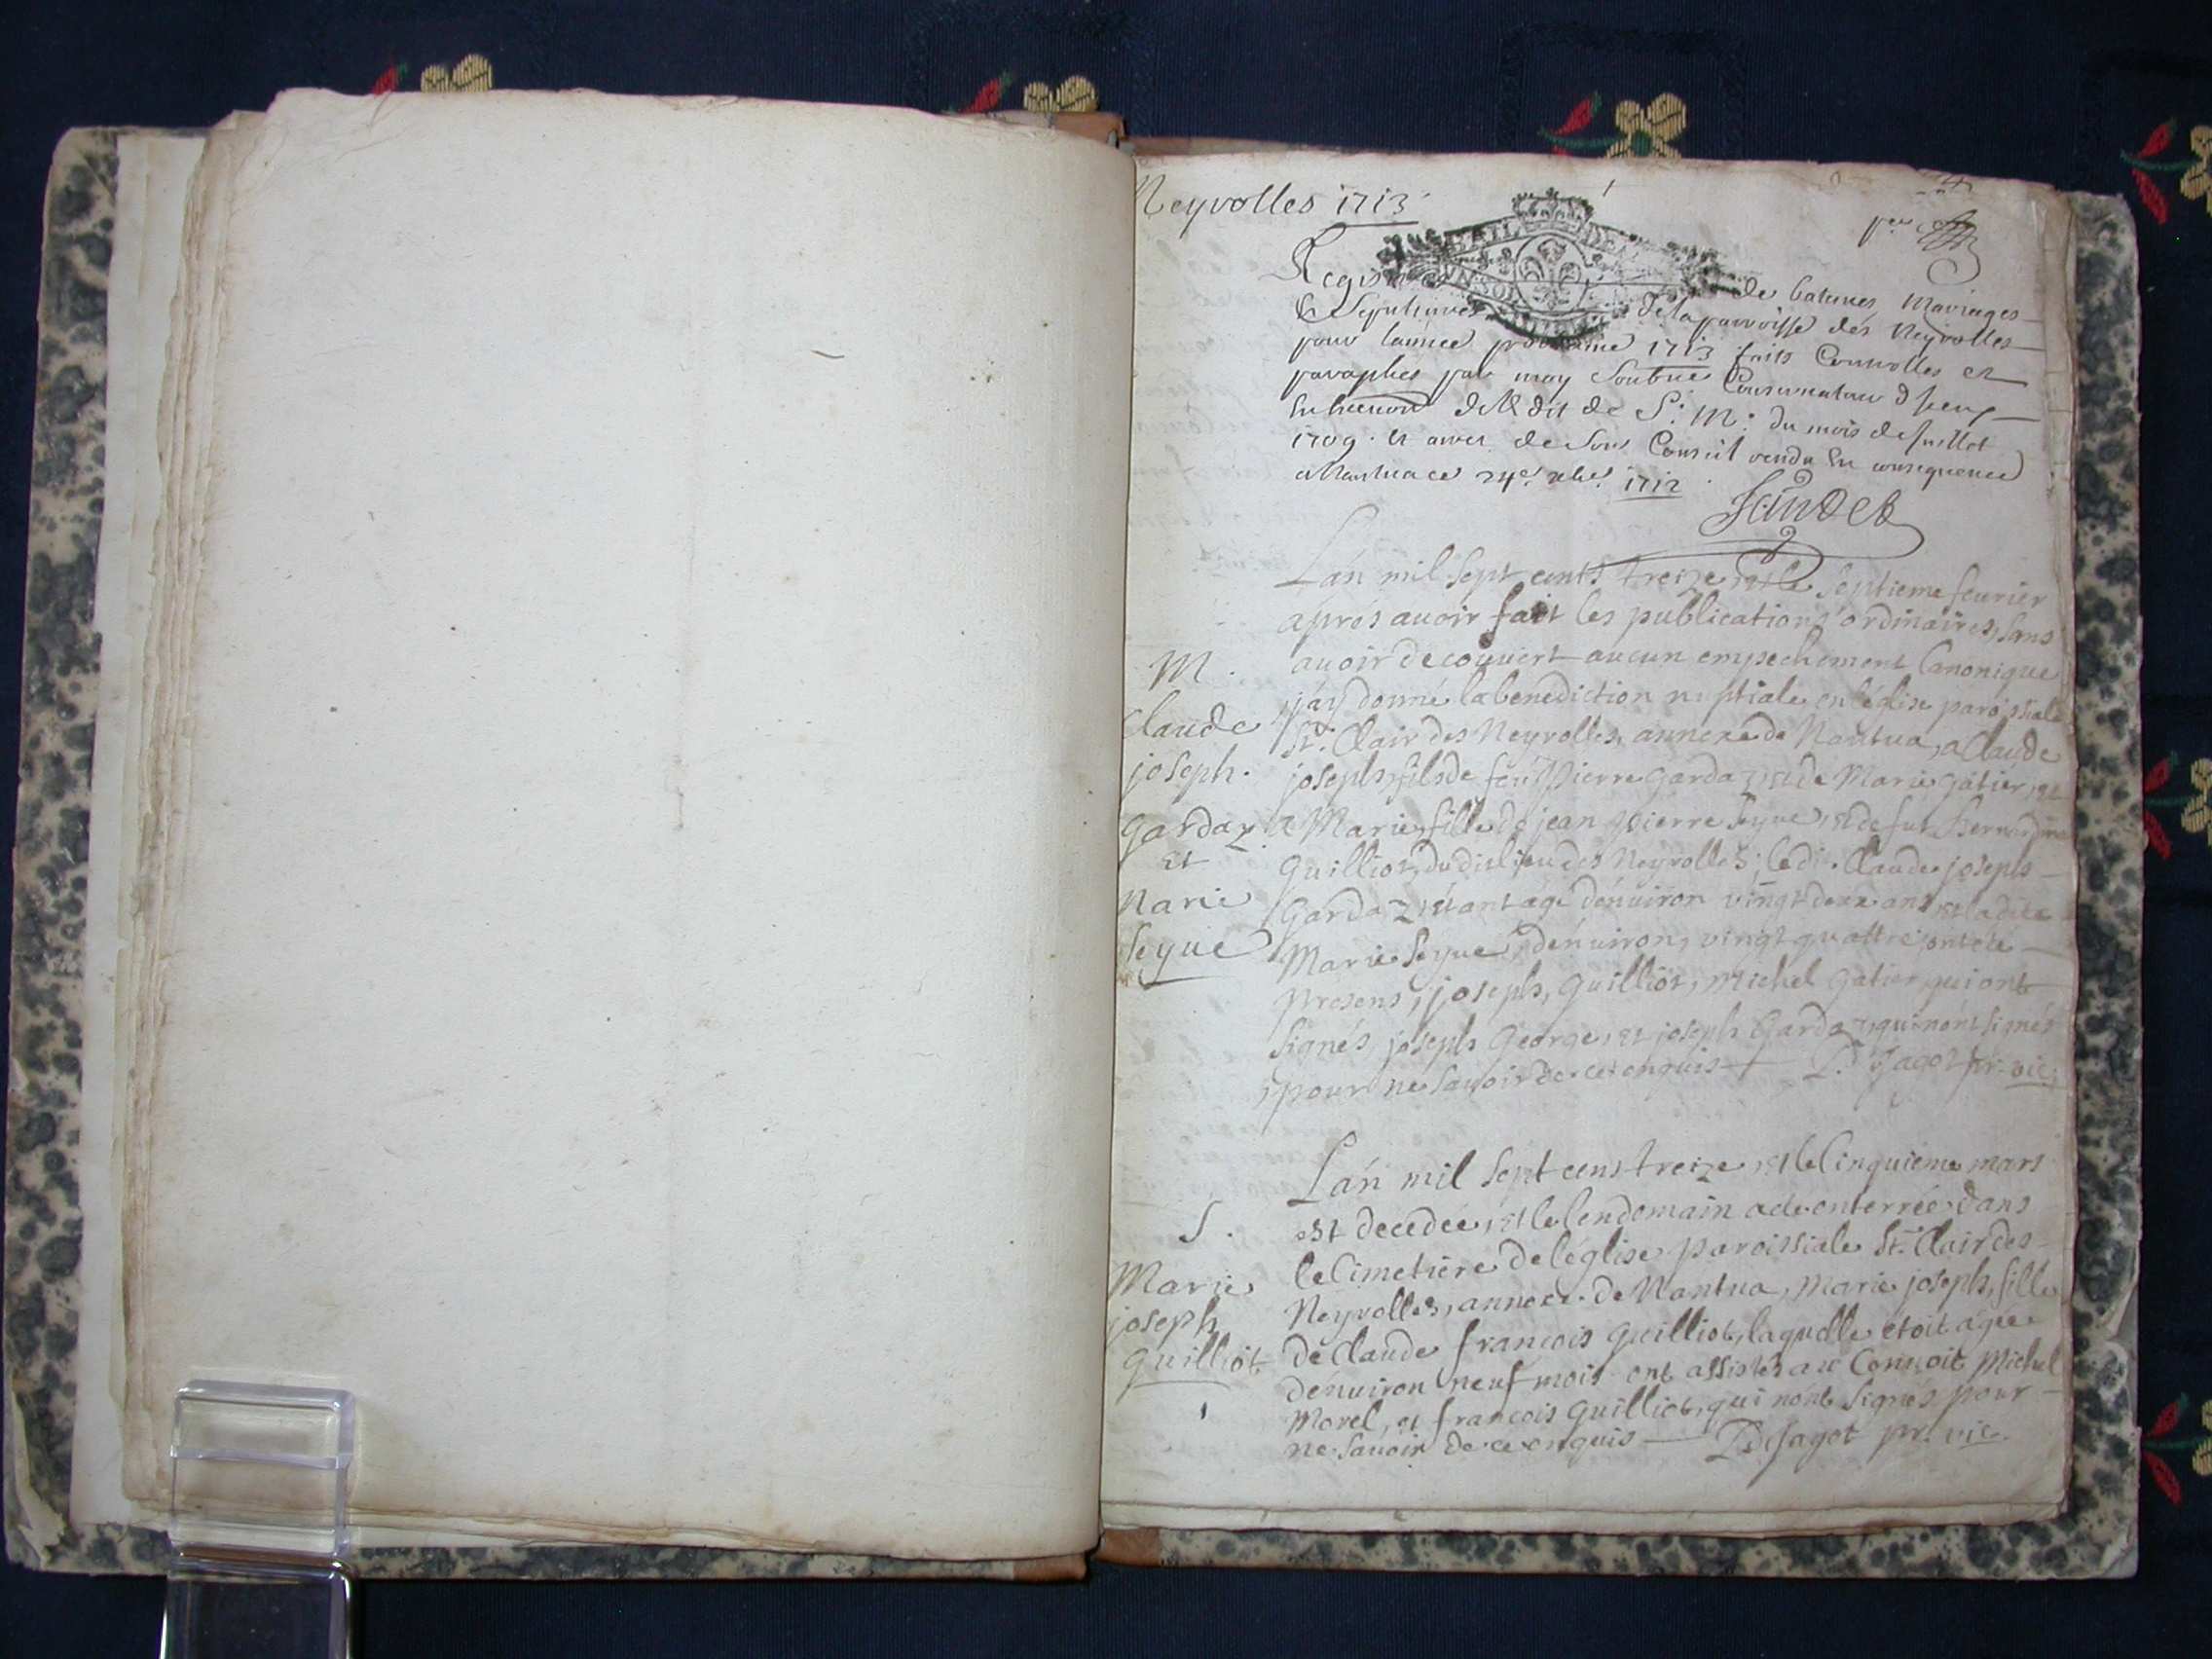 Neyrolles 1713
Registre de batemes, mariages
& Sepultures de la parroisse des Neyrolles
pour lannée prochaine 1713 faits Controlles et
paraphes par moy Conservateur
de ledit de S. M. du mois de Juillet
1709. et arret de Son Conseil rendu En consequence
a Nantua ce 24e. xbre. 1712
Lán mil sept cents treize, et le septieme feurier
apres auoir fait les publications ordinaires, sans
auoir decouuert aucun empechement Canonique
j'ay donné la benediction nuptiale en léglise paroissiale
St. Clair des Neyrolles, annexe de Nantua, a Claude
joseph, fils de feu Pierre Gardaz, et de Marie Gatier, et
a Marie, fille de jean Pierre Seyue, et de fue Bernardine
Guilliot, dudit lieu des Neyrolles; ledit Claude joseph
Gardaz, étant agé dénuiron vingt deux ans, et ladite
Marie Seyue, dénuiron, vingt quattre, ont été
presens, joseph, Guilliot, Michel Gatier, qui ont
signés, joseph George, et joseph Gardaz, qui nónt signés
pour ne sauoir de ce enquis — Jagot pr. vic.
M.
Claude
joseph.
Gardaz.
et
Marie
Seyue
Lán mil sept cens treize, et le Cinquieme mars
est decedée, et le lendemain a été enterrée dans
le Cimetiere de léglise paroissiale St. Clair des
Neyrolles, annexe de Nantua, Marie joseph, fille
de Claude francois Guilliot, laquelle étoit agée
dénuiron neuf mois ont assistés au Conuoit Michel
Morel, et francois Guilliot, qui nont signés pour
ne sauoir de ce enquis — Jagot pr. vic.
S.
Marie
joseph
Guilliot
1